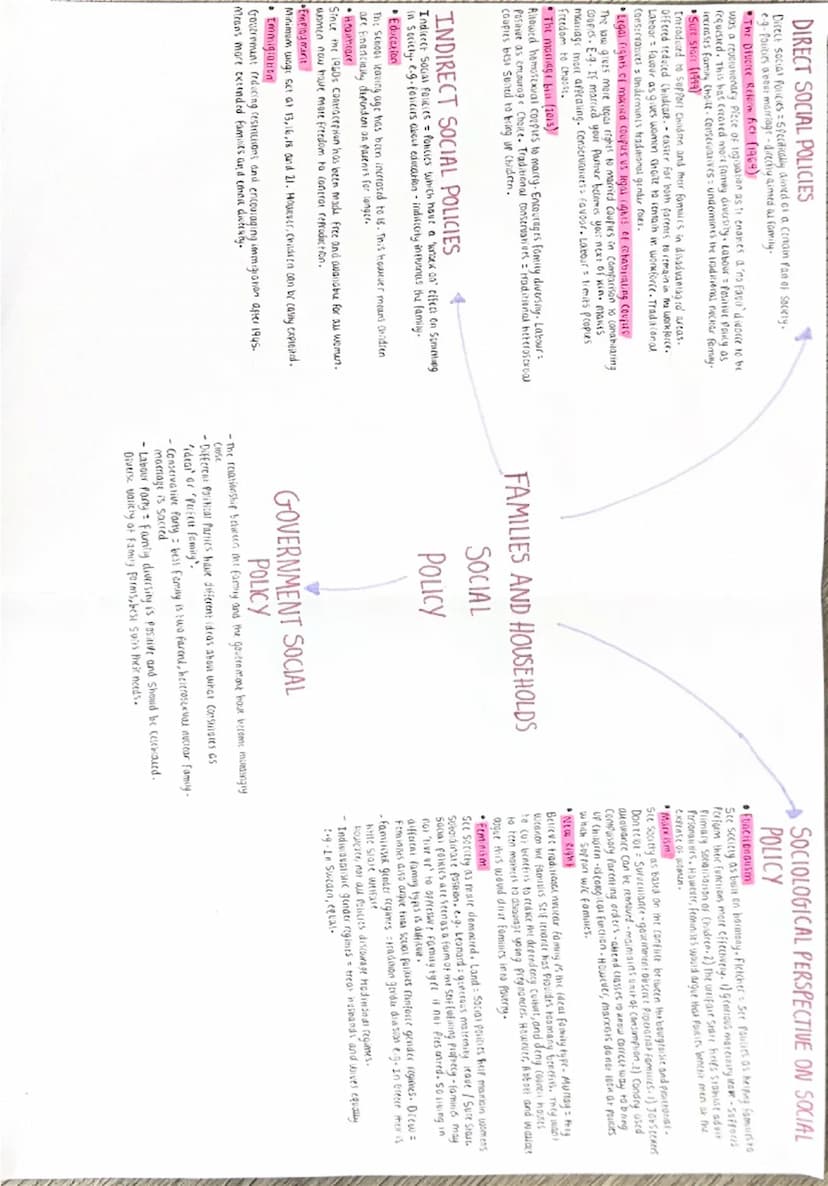 DIRECT SOCIAL POLICIES
Direct Social Policies = Specifically aimed at a certain Part of Society.
e.g. Policies about marriage - directly aimed at family.
• The Divorce Reform Act (1969)
was a revolutionary Piece of legislation as it enabled a 'no fault' divorce to be
requested. This has created more family diversity. Labour = Positive Policy as
increases family choice. Conservatives = undermines the traditional nuclear family.
• Sure Start (1999)
Introduced to Support Children and their Families in disadvantaged areas.
Offered reduced Childcare. - easier for both parents to remain in the workforce.
Labour = Favour as gives women choice to remain in workforce. Traditional
Conservatives = Undermines traditional gender roles.
• Legal rights of married couples vs legal rights of cohabitating couples
The law gives more legal rights to married couples in comparison to cohabitating
couples. E.g. If married your Partner becomes your next of kin. Makes
marriage more appealing. Conservatives = Favour. Labour = limits Peoples
Freedom to choose.
• The marriage bill (2013)
Allowed homosexual couples to marry. Encourages Family diversity. Labour =
Positive as encourage Choice. Traditional Conservatives = traditional heterosexual
couples best Suited to bring up children.
INDIRECT SOCIAL POLICIES
Indirect Social Policies = Policies which have a 'knock on' effect on Something
in Society. e.g. Policies about education - indirectly influences the family.
• Education
The School leaving age has been increased to 18. This however means Children
are financially dependent on Parents for longer.
• Healthcare
Since the 1960s Contraception has been made free and available for all women.
Women now have more freedom to control reproduction.
• Employment
Minimum wage Set at 15, 16, 18 and 21. However, children can be easily exploited.
• Immigration
Government reducing restrictions and encouraging immigration after 1945.
Means more extended Families and ethnic diversity.
FAMILIES AND HOUSEHOLDS
SOCIAL
POLICY
GOVERNMENT SOCIAL
POLICY
- The relationship between the family and the government have become increasingly
close
- Different Political Parties have different ideas about what Constitutes as
'ideal' or 'Perfect family'.
- Conservative Party = best Family is two Parent, heterosexual nuclear Family.
marriage is Sacred
- Labour Party = Family diversity is Positive and Should be celebrated.
Diverse variety of Family Forms, best Suits their needs.
SOCIOLOGICAL PERSPECTIVE ON SOCIAL
POLICY
• Functionalism
See Society as built on harmony. Fletcher = See Policies as helping families to
Perform their functions more effectively. 1) Generous maternity - Supports
Primary Socialisation of Children. 2) The welfare State helps Stabilise adult
Personalities. However, Feminists would argue that Policies benefit men at the
expense of women.
• Marxism
See Society as based on the conflict between the bourgeoisie and proletariat.
Donzelot = Surveillance - government observe Proletariat Families. 1) Job Seekers
allowance can be removed - maintains unit of Consumption. 2) Condry used
Compulsory Parenting orders - Parent classes to know correct way to bring
up children - ideological function. However, marxists do not look at Policies
which Support w/c families.
• New Right
Believe traditional nuclear family is the ideal family type. Murray = they
weaken the families Self reliance has Provides too many benefits. They want
to cut benefits to reduce the dependency culture, and deny council houses
to teen mothers to discourage young Pregnancies. However, Abbott and Wallace
argue this would drive families into Poverty.
• Feminism
See Society as male dominated. Land = Social Policies help maintain womens
Subordinate Position. e.g. Leonard = generous maternity leave / Sure Start.
Social Policies are seen as a form of the Self fulfilling Prophecy - families may
not 'live up' to alternative family types if not Presented. So living in
different family types is difficult.
Feminists also argue that social Policies reinforce gender regimes. Drew =
- Familistic gender regimes = tradition gender division e.g. In Greece their is
little State welfare
However, not all policies discourage traditional regimes.
- Individualistic gender regimes = treat husbands and wives equally
E.g. In Sweden, equal.